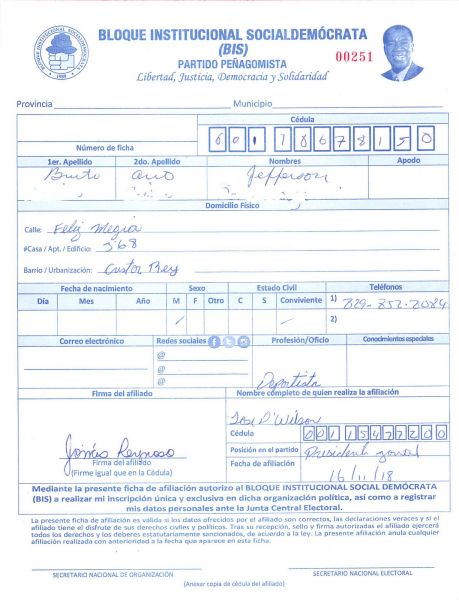 BLOQUE INSTITUCIONAL SOCIALDEMÓCRATA
(BIS)
PARTIDO PEÑAGOMISTA
Libertad, Justicia, Democracia y Solidaridad
00251
Provincia Municipio
Cédula
Número de ficha
1er. Apellido 2do. Apellido Nombres Apodo
Jefferson
Domicilio Físico
Calle: Feliz
#Casa / Apt. / Edificio: 368
Barrio / Urbanización:
Fecha de nacimiento Sexo Estado Civil Teléfonos
Día Mes Año M F Otro C S Conviviente 1) 829-852-2084
2)
Correo electrónico Redes sociales Profesión/Oficio Conocimientos especiales
@
@
@
Deportista
Firma del afiliado Nombre completo de quien realiza la afiliación
Jose D'Wilson
Cédula 00115477200
Reynoso Posición en el partido
Firma del afiliado
(Firme igual que en la Cédula) Fecha de afiliación 16/11/18
Mediante la presente ficha de afiliación autorizo al BLOQUE INSTITUCIONAL SOCIAL DEMÓCRATA
(BIS) a realizar mi inscripción única y exclusiva en dicha organización política, así como a registrar
mis datos personales ante la Junta Central Electoral.
La presente ficha de afiliación es válida si los datos ofrecidos por el afiliado son correctos, las declaraciones veraces y si el
afiliado tiene el disfrute de sus derechos civiles y políticos. Tras su recepción, sello y firma autorizadas el afiliado ejercerá
todos los derechos y los deberes estatutariamente sancionados, de acuerdo a la ley. La presente afiliación anula cualquier
afiliación realizada con anterioridad a la fecha que aparece en esta ficha.
SECRETARIO NACIONAL DE ORGANIZACIÓN SECRETARIO NACIONAL ELECTORAL
(Anexar copia de cédula del afiliado)